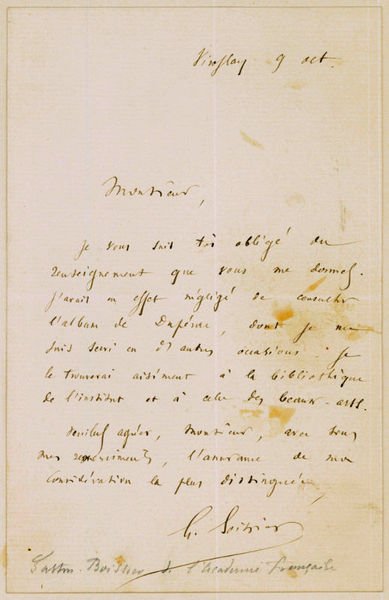 Viroflay 9 oct.
Monsieur,
Je vous suis très obligé du
renseignement que vous me donnez.
J'avais en effet négligé de consulter
l'album de Dupérac, dont je me
suis servi en d'autres occasions. Je
le trouverai aisément à la bibliothèque
de l'institut et à celle des beaux-arts.
Veuillez agréer, Monsieur, avec tous
mes remerciements, l'assurance de ma
considération la plus distinguée,
G. Boissier
Gaston Boissier de l'Académie française